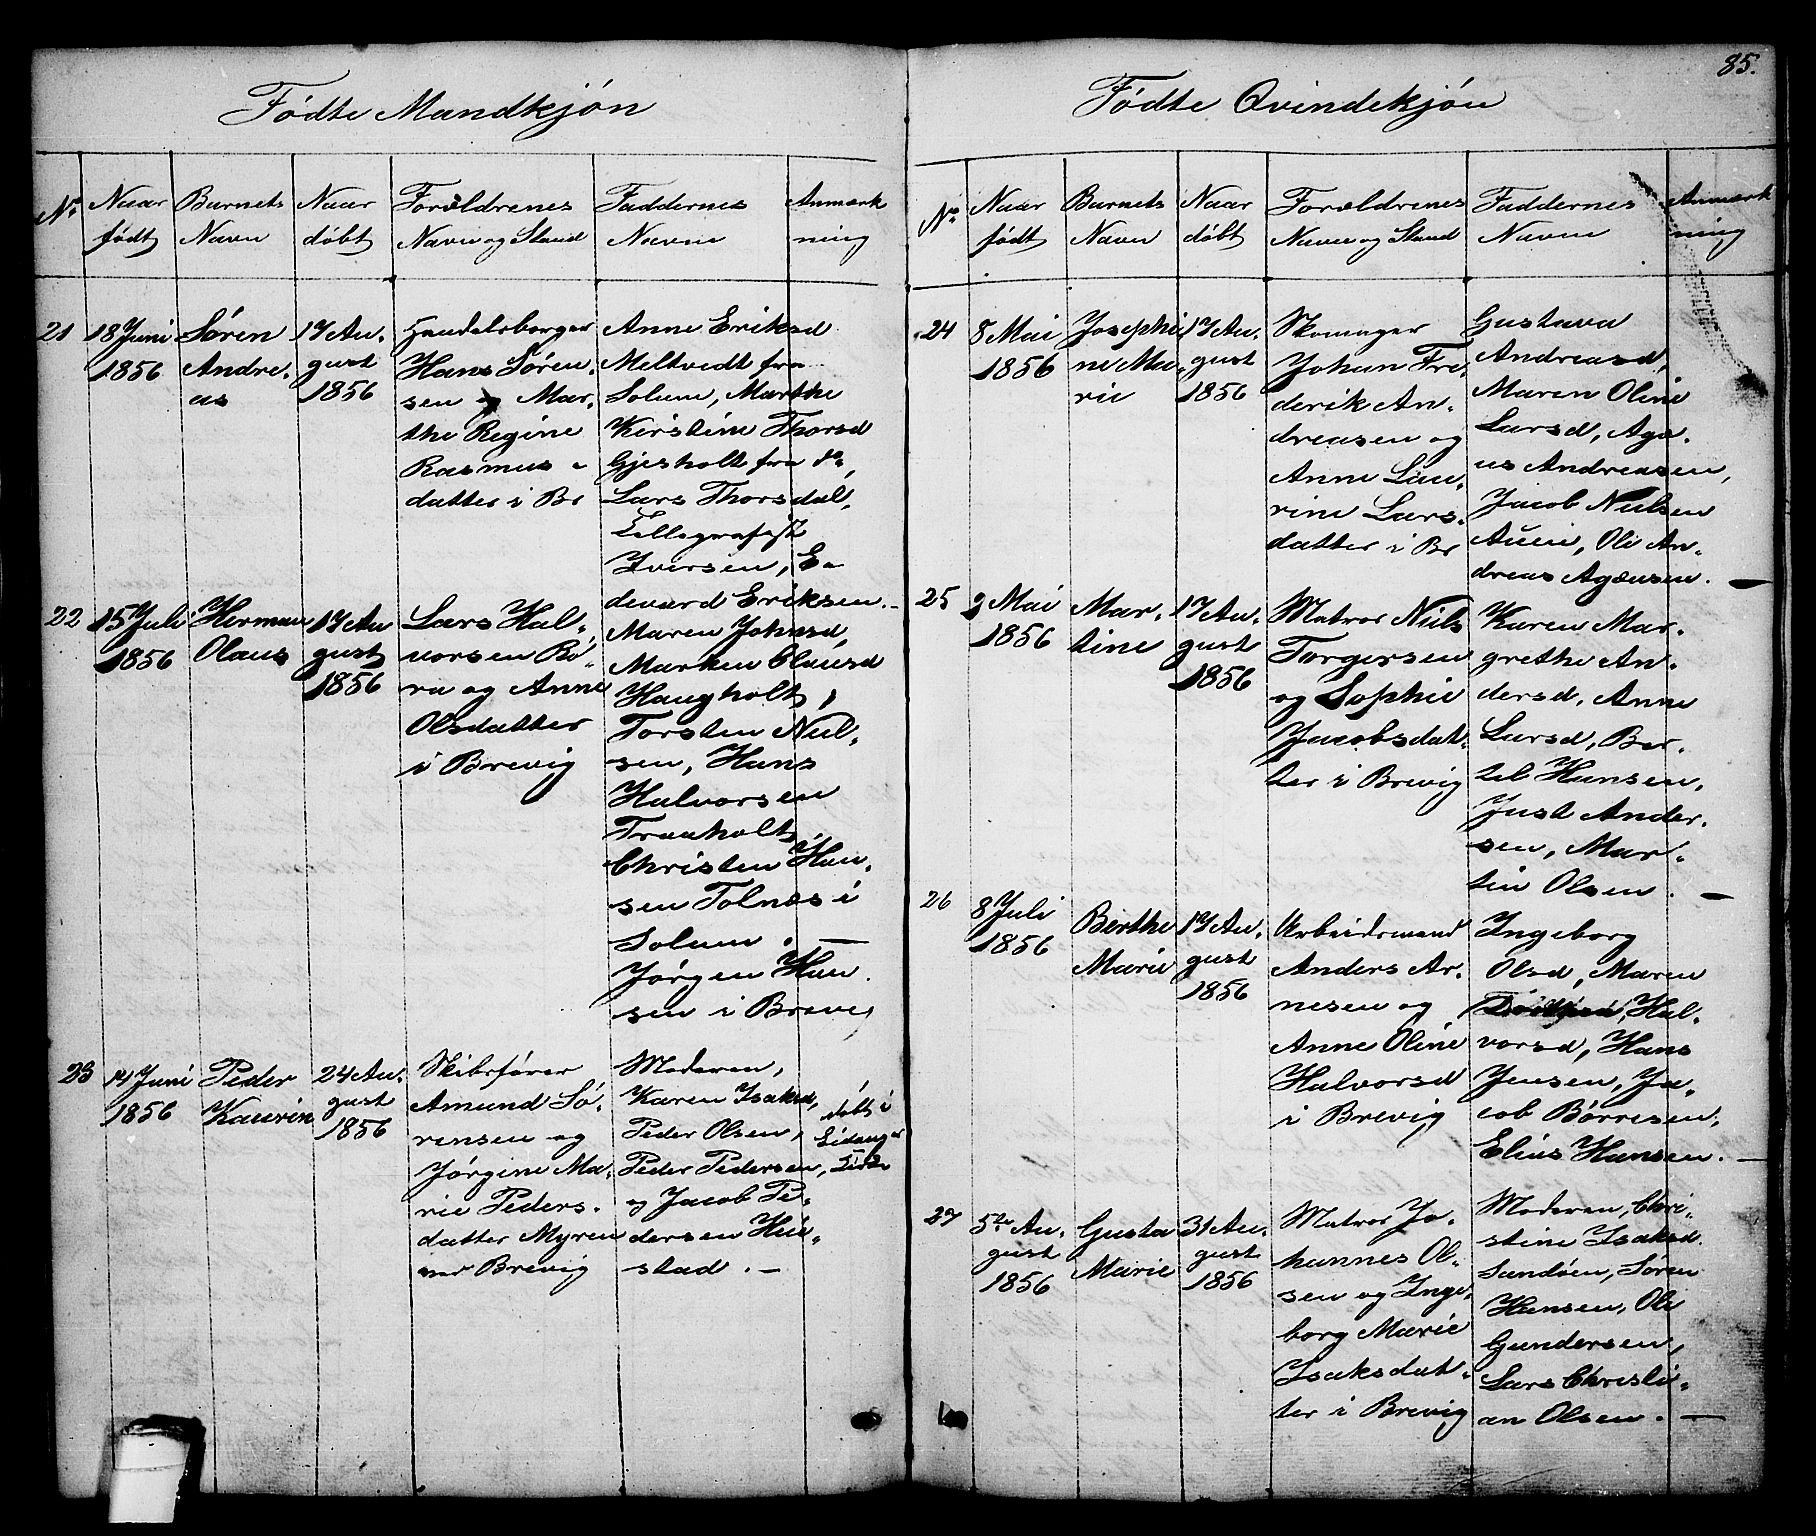 Fødte Mandkjøn
No.
Naar
født
Barnets
Navn
Naar
døbt
Forældrenes
Navn og Stand
Faddernes
Navne
Anmærk
ning
21
18 Juni
1856
Søren
Andre-
as
17 Au-
gust
1856
Handelsborger
Hans Søren-
sen og Mar-
the Regine
Rasmus-
datter i Br
Anne Eriksd
Meltvedt fra
Solum, Marthe
Kirstine Thorsd
Gjesholt fra do,
Lars Thorsdal,
Tellegrafist
Iversen, E-
devard Eriksen.-
22
15 Juli
1856
Herman
Olaus
17 Au
gust
1856
Lars Hal-
vorsen Bø-
ra og Anne
Olsdatter
i Brevig
Maren Johnsd,
Marken Clausd
Haugholt,
Torsten Niel-
sen, Hans
Halvorsen
Traaholt,
Christen Han-
sen Tolnæs i
Solum. —
Jørgen Han-
sen i Brevig
23
14 Juni
1856
Peder
Kaurin
24 Au-
gust
1856
Skibsfører
Amund Sø-
rensen og
Jørgine Ma-
rie Peders-
datter Myren
ved Brevig
Moderen,
Karen Isaksd,
Peder Olsen,
Peder Pedersen,
og Jacob Pe-
dersen Hui-
stad. —
døbt i
Eidanger
Kirke
85.
Fødte Qvindekjøn
No.
Naar
født
Barnets
Navn
Naar
døbt
Forældrenes
Navn og Stand
Faddernes
Navne
Anmærk
ning
24
8 Mai
1856
Josephi
ne Ma-
rie
17 Au-
gust
1856
Skomager
Johan Fre-
derik An-
dreasen og
Anne Lau-
rine Lars-
datter i Br
Gustava
Andreasd,
Maren Oline
Larsd, Aga-
us Andreasen,
Jacob Nielsen
Auen, Ole An-
dreas Agæusen. —
25
2 Mai
1856
Mar-
tine
17 Au-
gust
1856
Matros Niels
Torgersen
og Sophie
Jacobsdat-
ter i Brevig
Karen Mar-
grethe An-
dersd, Anne
Larsd, Ber-
tel Hansen,
Just Ander-
sen, Mar-
tin Olsen. —
26
8 Juli
1856
Berthe
Marie
17 Au-
gust
1856
Arbeidsmand
Anders Ar-
nesen og
Anne Oline
Halvorsd
i Brevig
Ingeborg
Olsd, Maren
Hal-
vorsd, Hans
Jensen, Ja-
cob Børresen,
Elias Hansen. —
27
5te Au-
gust
1856
Gusta
Marie
31 Au-
gust
1856
Matros Jo-
hannes Ol-
sen og Inge-
borg Marie
Isaksdat-
ter i Brevig
Moderen, Chri-
stine Isaksd.
Sandøen, Søren
Hansen, Ole
Gundersen,
Lars Christi-
an Olsen. —